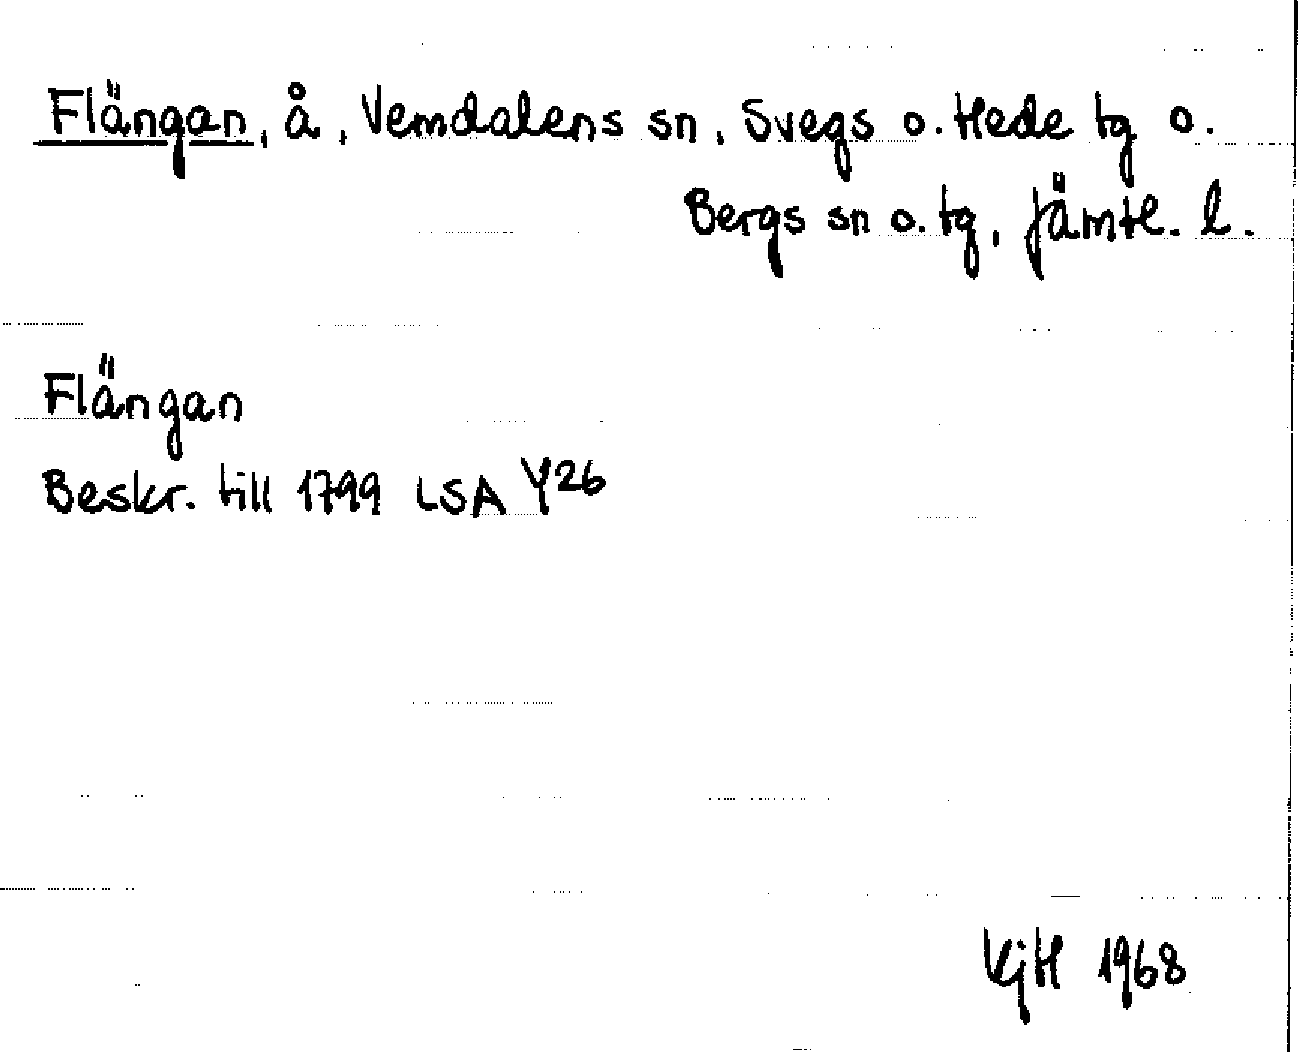 Flängan, å, Vemdalens sn, Svegs o. Hede tg o.
Bergs sn o. tg, Jämtl. l.
Flängan
Beskr. till 1799 LSA Y26
KjH 1968